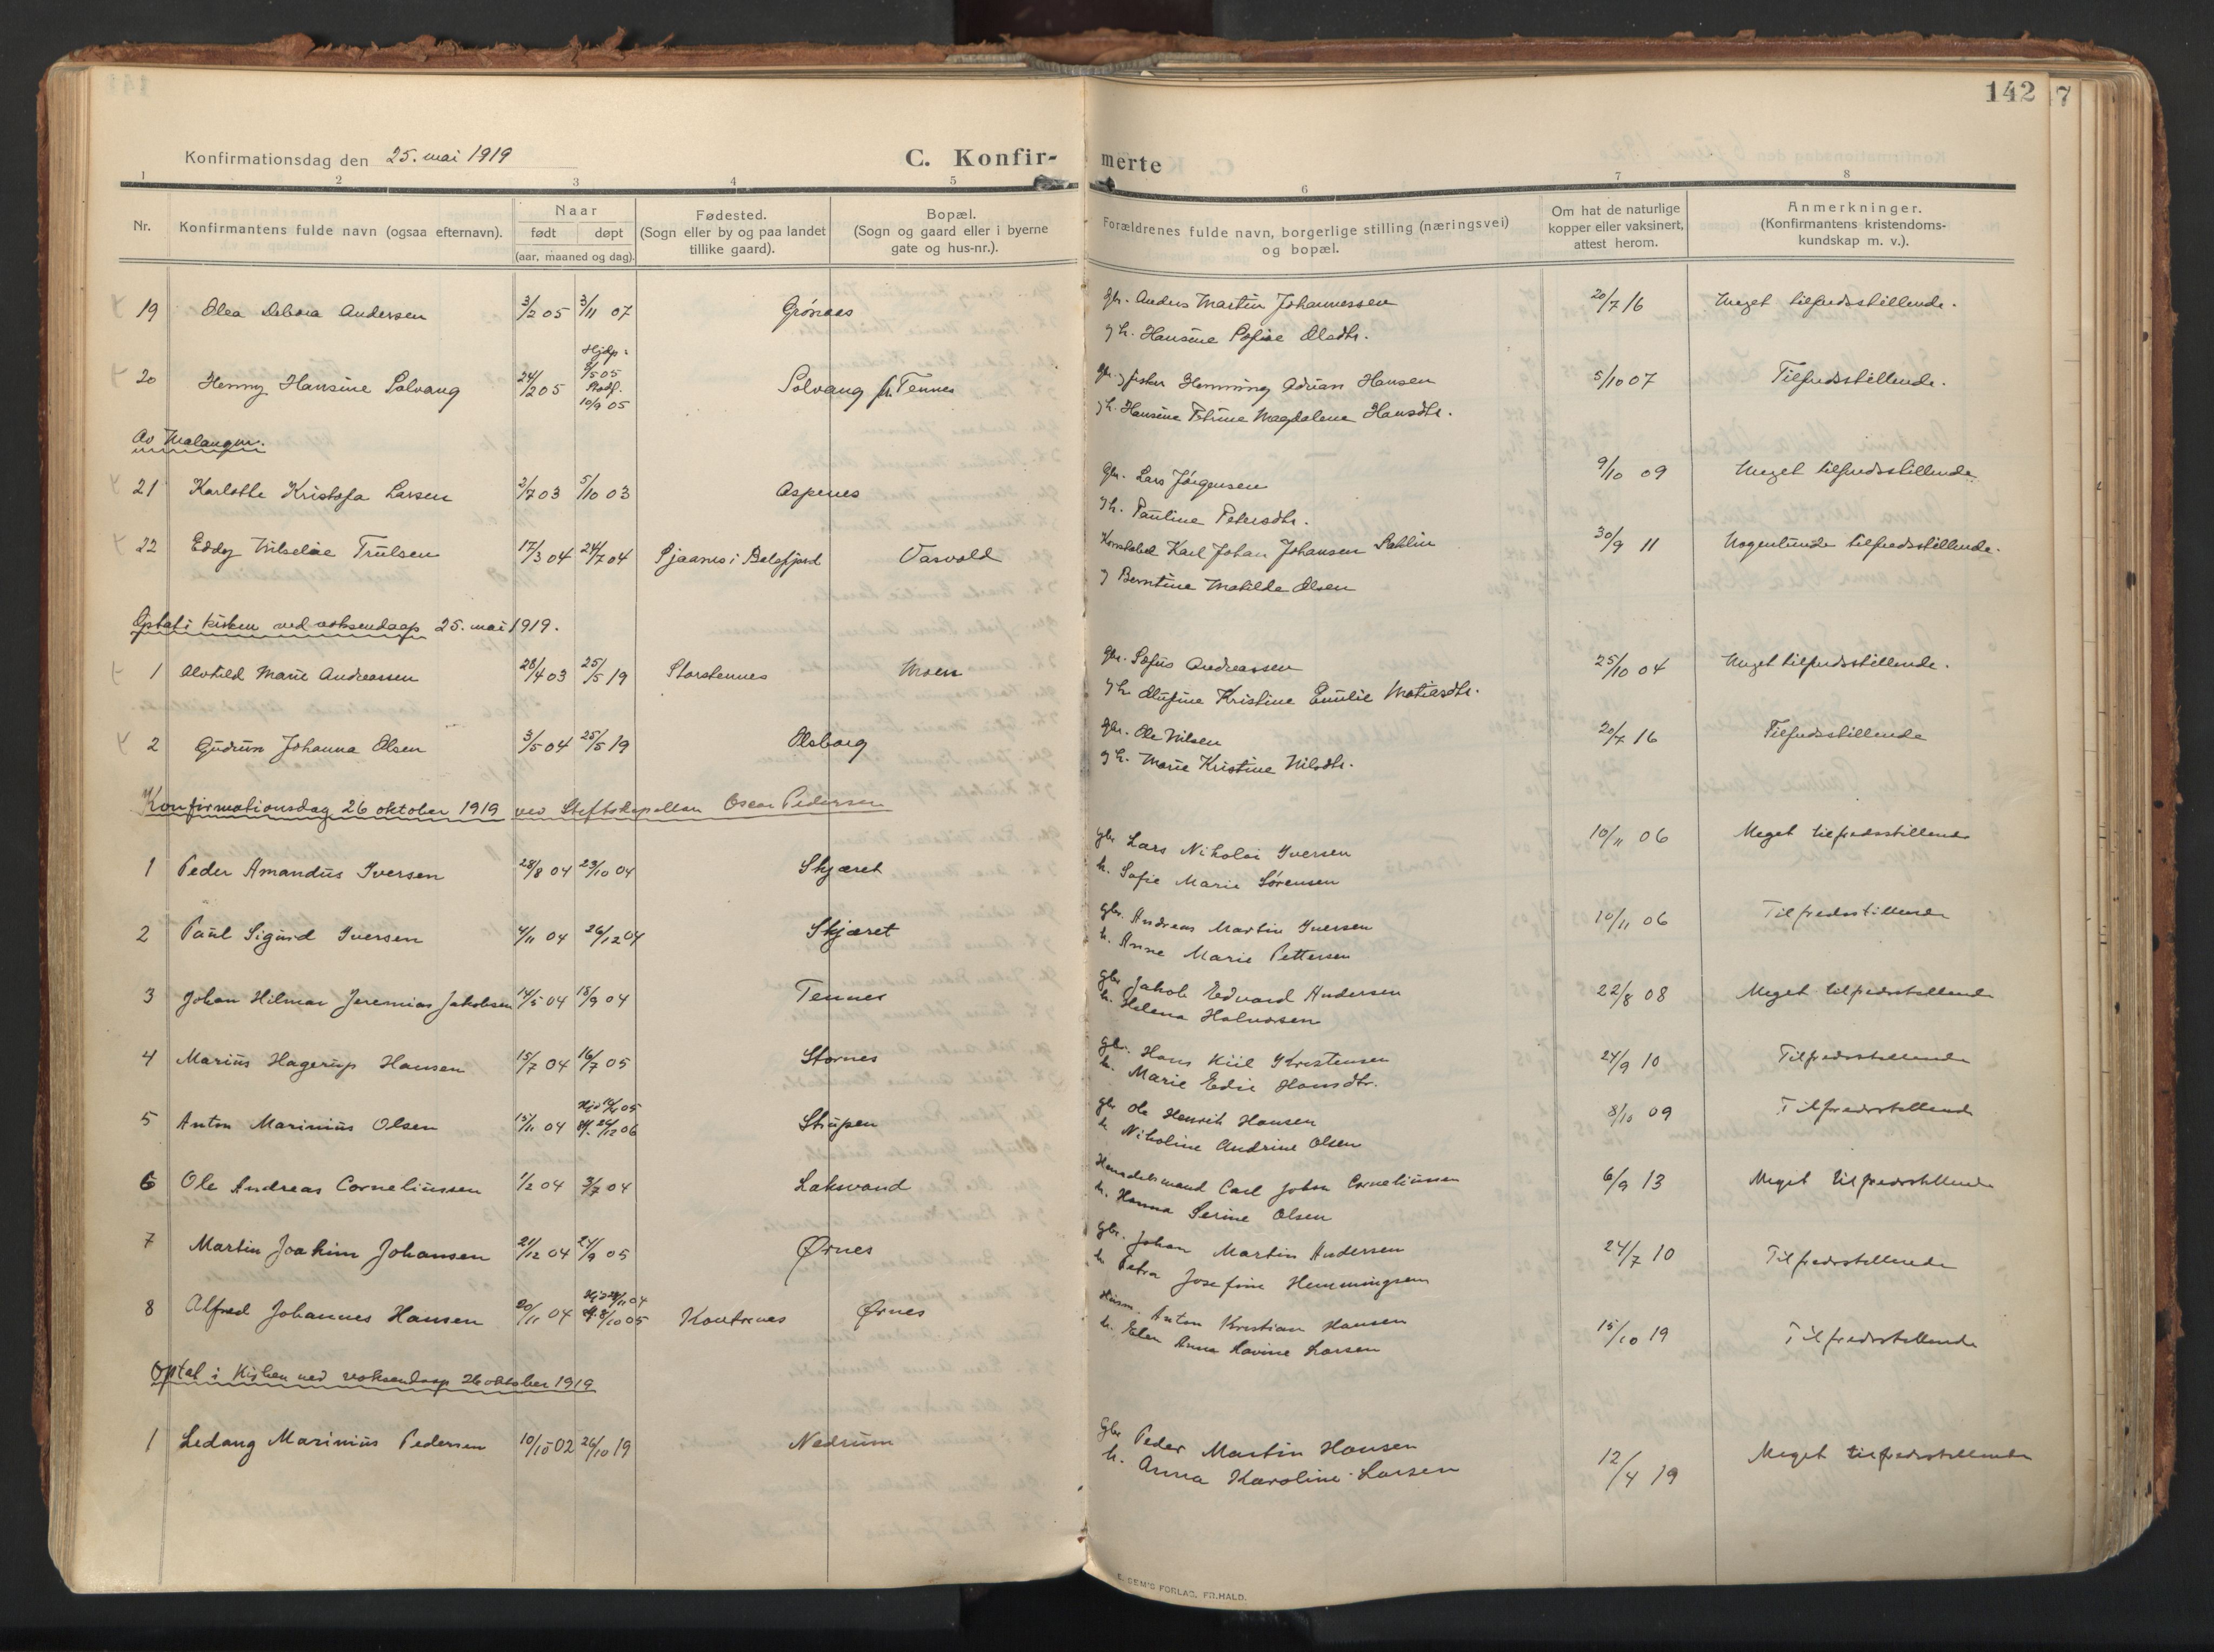 142
7
Konfirmationsdag den 25. mai 1919
C. Konfir-
merte
1 2 3 4 5 6 7 8
Nr.
Konfirmantens fulde navn (ogsaa efternavn).
Naar
født døpt
(aar, maaned og dag).
Fødested.
(Sogn eller by og paa landet
tillike gaard).
Bopæl.
(Sogn og gaard eller i byerne
gate og hus-nr.).
Forældrenes fulde navn, borgerlige stilling (næringsvei)
og bopæl.
Om hat de naturlige
kopper eller vaksinert,
attest herom.
Anmerkninger.
(Konfirmantens kristendoms-
kundskap m. v.).
19 Olea Andersen 3/2 05 3/11 07 Grønnes
Gbr. Anders Martin Johannessen
og h. Hansine Olsdtr.
20/7 16 Meget tilfredsstillende.
20 Henny Hansine Solvang 24/2 05
Hjdp:
8/5 05
Stadf.
10/9 05
Solvang fr. Tennes
Gbr. og fisker Henning Adrian Hansen
og h. Hansine Petrine Magdalene Hansdtr.
5/10 07 Tilfredsstillende.
Av Malangen.
21 Karlotte Kristofa Larsen 2/7 03 5/10 03 Aspenes
Gbr. Lars Jørgensen
og h. Pauline Petersdtr.
9/10 09 Meget tilfredsstillende
22 Eddy Trulsen 17/3 04 24/7 04 Sjaanes i Balsfjord Vasvold
Konstabel Karl Johan Johansen
og Berntine Matilde Olsen
30/9 11 Nogenlunde tilfredsstillende.
Optat i kirken ved voksendaap 25. mai 1919.
1 Alvhild Marie Andreassen 28/4 03 25/5 19 Storstennes Moen
Gbr. Sofus Andreassen
og h. Olufine Kristine Emilie Matiasdtr.
25/10 04 Meget tilfredsstillende.
2 Gudrun Johanna Olsen 3/5 04 25/5 19 Olsborg
Gbr. Ole Nilsen
og h. Marie Kristine Nilsdtr.
20/7 16 Tilfredsstillende
Konfirmationsdag 26 oktober 1919 ved Stiftskapellan Oscar Pedersen
1 Peder Amandus Iversen 28/8 04 23/10 04 Skjæret
Gbr Lars Nikolai Iversen
h. Sofie Marie Sørensen
10/11 06 Meget tilfredsstillende
2 Paul Sigurd Iversen 4/11 04 26/12 04 Skjæret
Gbr. Andreas Martin Iversen
h. Anne Marie Pettersen
10/11 06 Tilfredsstillende
3 Johan Hilmar Jeremias Jakobsen 14/5 04 18/9 04 Tennes
Gbr Jakob Edvard Andersen
h. Helena Halvorsen
22/8 08 Meget tilfredsstillende
4 Marius Hagerup Hansen 15/7 04 16/7 05 Stornes
Gbr. Hans Kiil Kristensen
h. Marie Edie Hansdtr.
24/9 10 Tilfredsstillende
5 Anton Marinius Olsen 15/11 04
06 Stupen
Gbr Ole Henrik Hansen
h Nikoline Andrine Olsen
8/10 09 Tilfredsstillende
6 Ole Andreas Corneliussen 1/2 04 3/7 04 Laksvand
Handelsmand Carl Johan Corneliussen
h. Hanna Serine Olsen
6/9 13 Meget tilfredsstillende
7 Martin Joakim Johansen 21/12 04 24/9 05 Ørnes
Gbr. Johan Martin Andersen
h Petra Josefine Hemmingsen
24/7 10 Tilfredsstillende
8 Alfred Johannes Hansen 20/11 04
8/10 05 Kantornes Ørnes
Husm. Anton Kristian Hansen
h. Elen Anna Havine Larsen
15/10 19 Tilfredsstillende
Optat i Kirken ved voksendaap 26 oktober 1919
1 Ledang Marinius Pedersen 10/10 02 26/10 19 Nedrum
Gbr Peder Martin Hansen
h. Anna Karoline Larsen
12/4 19 Meget tilfredsstillende
SEM'S FORLAG, FR.HALD.